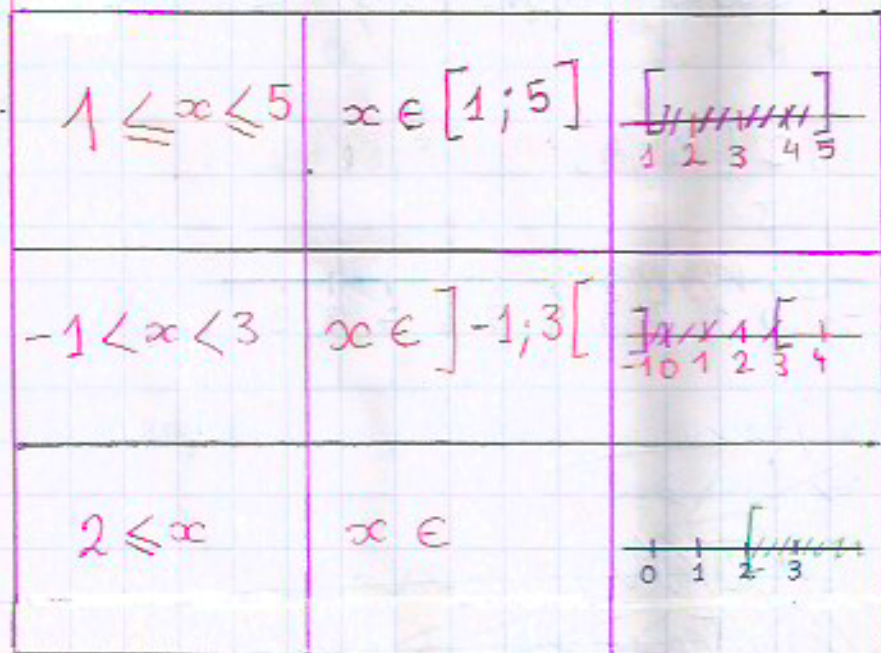 1 ≤ x ≤ 5 x ∈ [1 ; 5] [ ]
1 2 3 4 5
-1 < x < 3 x ∈ ]-1 ; 3[ ] [
-1 0 1 2 3 4
2 ≤ x x ∈ [
0 1 2 3